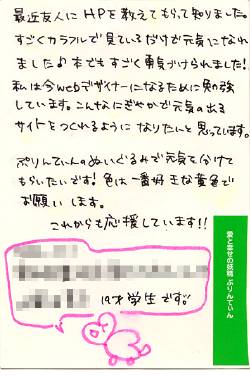 最近友人にHPを教えてもらって知りました。
すごくカラフルで見ているだけで元気になれ
ました♪本でもすごく勇気づけられました!
私は今webデザイナーになるために勉強
しています。こんなにぎやかで元気の出る
サイトをつくれるように なりたいと思っています。
ぷりんてぃんのぬいぐるみで元気を分けて
もらいたいです!色は一番好きな黄色で
お願いします。
これからも応援しています!!
19才学生です。
愛と幸せの妖精 ぷりんてぃん